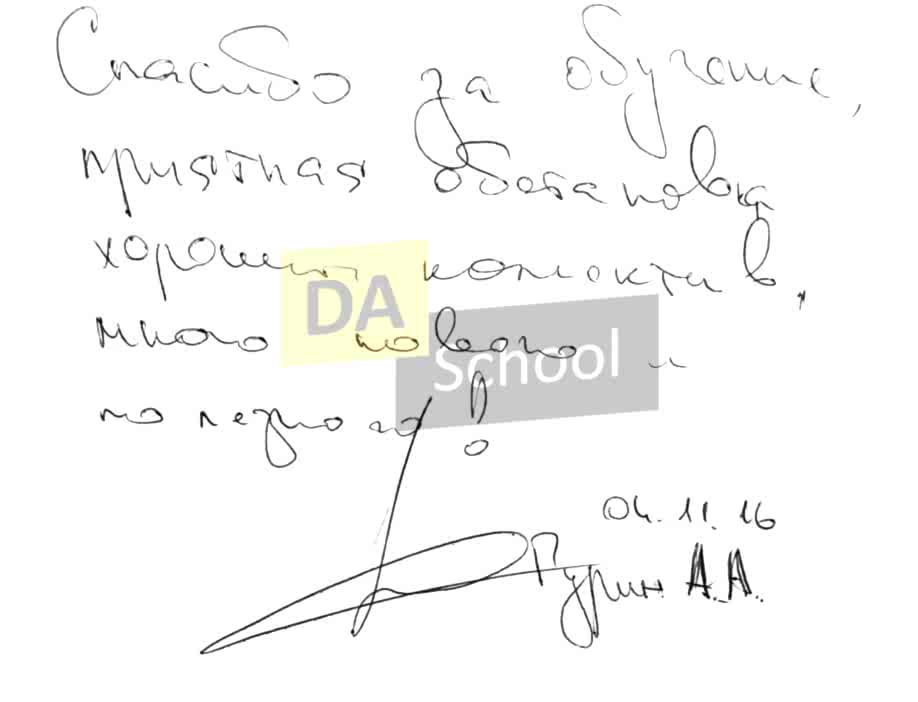 Спасибо за обучение,
приятная обстановка
хороший коллектив,
много нового и
полезного!
DA
School
04.11.16
Гурин А.А.